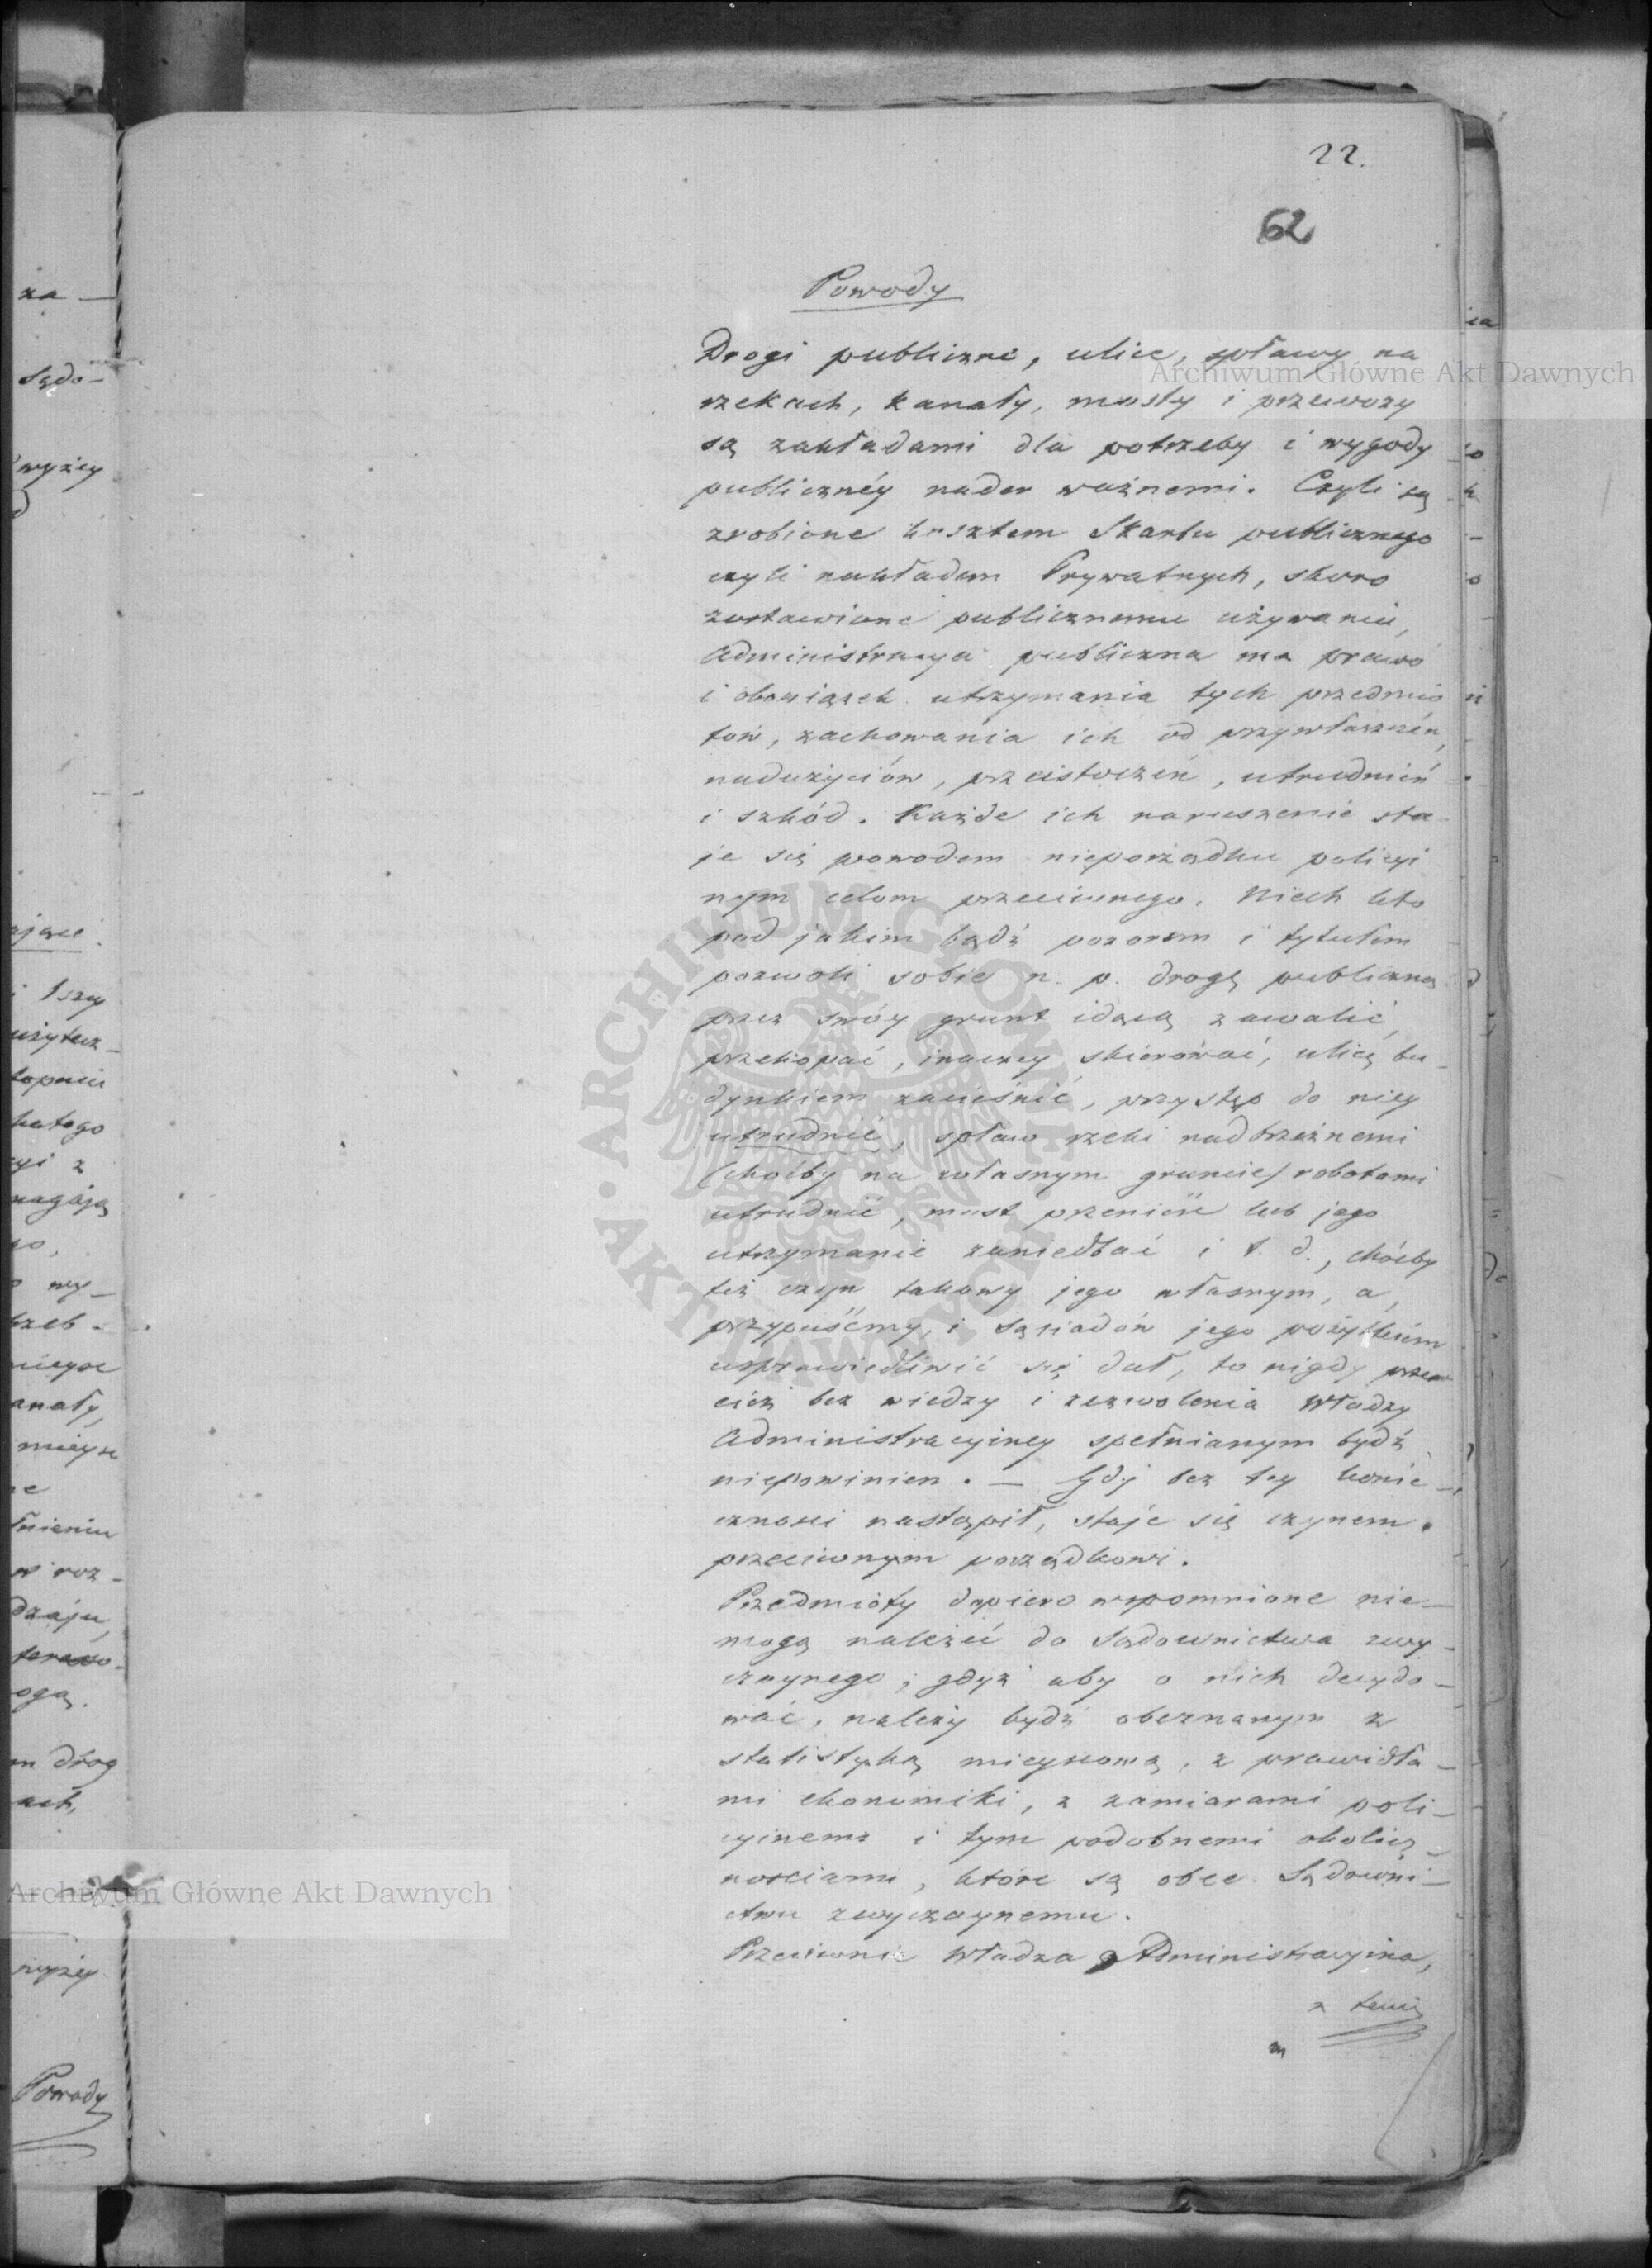 22.
62
Powody
Drogi publiczne, ulice, spławy na
rzekach, kanały, mosty i przewozy
są zakładami dla potrzeby i wygody
publicznéy nader ważnemi. Czyli są
zrobione kosztem Skarbu publicznego
czyli nakładem Prywatnych, skoro
zostawione publicznemu używaniu,
Administracya publiczna ma prawo
i obowiązek utrzymania tych przedmio
tów, zachowania ich od przywłaszczeń,
nadużyciów, przeistoczeń, utrudnień
i szkód. Każde ich naruszenie sta
je się powodem nieporządku policyi
nym celom przeciwnego. Niech kto
pod jakim bądź pozorem i tytułem
pozwoli sobie n. p. drogę publiczną
przez swóy grunt idącą zawalić,
przekopać, inaczey skierować, ulicę bu_
dynkiem zacieśnić, przystęp do niey
utrudnić, spław rzeki nadbrzeżnemi
(choćby na własnym gruncie) robotami
utrudnić, most przenieść lub jego
utrzymanie zaniedbać i t. d., choćby
też czyn takowy jego własnym, a,
przypuśćmy, i sąsiadów jego pożytkiem
usprawiedliwić się dał, to nigdy prze
cież bez wiedzy i zezwolenia Władzy
Administracyiney spełnianym bydź
niepowinien. — Gdy bez tey konie_
czności nastąpił, staje się czynem
przeciwnym porządkowi.
Przedmioty dopiero wspomnione nie_
mogą należeć do Sądownictwa zwy_
czaynego; gdyż aby o nich decydo_
wać, należy bydź obeznanym z
statistyką mieyscową, z prawidła_
mi ekonomiki, z zamiarami poli_
cyinemi i tym podobnemi okolicz_
nościami, które są obce Sądowni_
ctwu zwyczaynemu.
Przeciwnie Władza Administracyina,
z temi
Archiwum Główne Akt Dawnych
Archiwum Główne Akt Dawnych
ARCHIWUM GŁÓWNE AKT DAWNYCH
za —
Sądo-
wyżey
i 1szy
użytecz_
topniu
katego
nagają
wy_
trzeb-
anały,
mieysc
łnieniu
w roz_
dzaju,
ogą.
dróg
ach,
wyżey
Powody